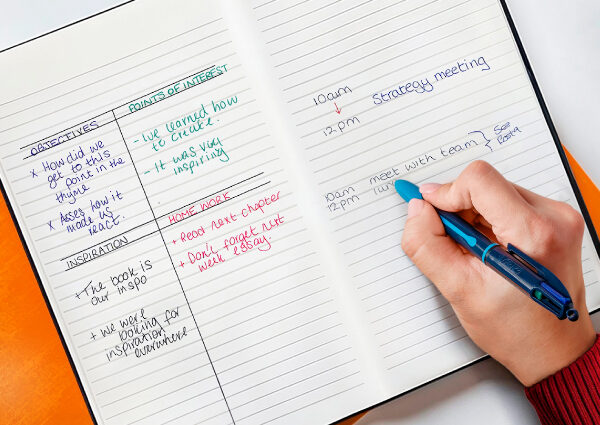 OBJECTIVES
x How did we
get to this
point in the
thyme
x Asses how it
made us
react.
POINTS OF INTEREST
- We learned how
to create.
- It was very
inspiring
INSPIRATION
+ The book is
our inspo
+ We were
looking for
inspiration
everywhere
HOME WORK
+ Read next chapter
+ Don't forget next
week essay.
10am
12pm
Strategy meeting
10am
12pm
meet with team
See